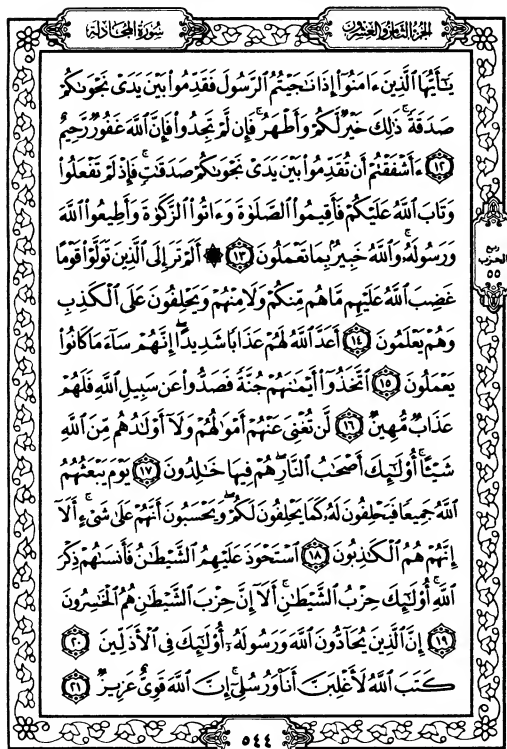 سُورَةُ المُجَادلة
الجزء الثامن والعشرون
يَٰٓأَيُّهَا ٱلَّذِينَ ءَامَنُوٓا۟ إِذَا نَٰجَيْتُمُ ٱلرَّسُولَ فَقَدِّمُوا۟ بَيْنَ يَدَىْ نَجْوَىٰكُمْ
صَدَقَةً ۚ ذَٰلِكَ خَيْرٌ لَّكُمْ وَأَطْهَرُ ۚ فَإِن لَّمْ تَجِدُوا۟ فَإِنَّ ٱللَّهَ غَفُورٌ رَّحِيمٌ
١٢ ءَأَشْفَقْتُمْ أَن تُقَدِّمُوا۟ بَيْنَ يَدَىْ نَجْوَىٰكُمْ صَدَقَٰتٍ ۚ فَإِذْ لَمْ تَفْعَلُوا۟
وَتَابَ ٱللَّهُ عَلَيْكُمْ فَأَقِيمُوا۟ ٱلصَّلَوٰةَ وَءَاتُوا۟ ٱلزَّكَوٰةَ وَأَطِيعُوا۟ ٱللَّهَ
وَرَسُولَهُۥ ۚ وَٱللَّهُ خَبِيرٌۢ بِمَا تَعْمَلُونَ ١٣ ۞ أَلَمْ تَرَ إِلَى ٱلَّذِينَ تَوَلَّوْا۟ قَوْمًا
غَضِبَ ٱللَّهُ عَلَيْهِم مَّا هُم مِّنكُمْ وَلَا مِنْهُمْ وَيَحْلِفُونَ عَلَى ٱلْكَذِبِ
وَهُمْ يَعْلَمُونَ ١٤ أَعَدَّ ٱللَّهُ لَهُمْ عَذَابًا شَدِيدًا ۖ إِنَّهُمْ سَآءَ مَا كَانُوا۟
يَعْمَلُونَ ١٥ ٱتَّخَذُوٓا۟ أَيْمَٰنَهُمْ جُنَّةً فَصَدُّوا۟ عَن سَبِيلِ ٱللَّهِ فَلَهُمْ
عَذَابٌ مُّهِينٌ ١٦ لَّن تُغْنِىَ عَنْهُمْ أَمْوَٰلُهُمْ وَلَآ أَوْلَٰدُهُم مِّنَ ٱللَّهِ
شَيْـًٔا ۚ أُو۟لَٰٓئِكَ أَصْحَٰبُ ٱلنَّارِ ۖ هُمْ فِيهَا خَٰلِدُونَ ١٧ يَوْمَ يَبْعَثُهُمُ
ٱللَّهُ جَمِيعًا فَيَحْلِفُونَ لَهُۥ كَمَا يَحْلِفُونَ لَكُمْ ۖ وَيَحْسَبُونَ أَنَّهُمْ عَلَىٰ شَىْءٍ ۚ أَلَآ
إِنَّهُمْ هُمُ ٱلْكَٰذِبُونَ ١٨ ٱسْتَحْوَذَ عَلَيْهِمُ ٱلشَّيْطَٰنُ فَأَنسَىٰهُمْ ذِكْرَ
ٱللَّهِ ۚ أُو۟لَٰٓئِكَ حِزْبُ ٱلشَّيْطَٰنِ ۚ أَلَآ إِنَّ حِزْبَ ٱلشَّيْطَٰنِ هُمُ ٱلْخَٰسِرُونَ
١٩ إِنَّ ٱلَّذِينَ يُحَآدُّونَ ٱللَّهَ وَرَسُولَهُۥٓ أُو۟لَٰٓئِكَ فِى ٱلْأَذَلِّينَ ٢٠
كَتَبَ ٱللَّهُ لَأَغْلِبَنَّ أَنَا۠ وَرُسُلِىٓ ۚ إِنَّ ٱللَّهَ قَوِىٌّ عَزِيزٌ ٢١
ربع
الحزب
٥٥
٥٤٤